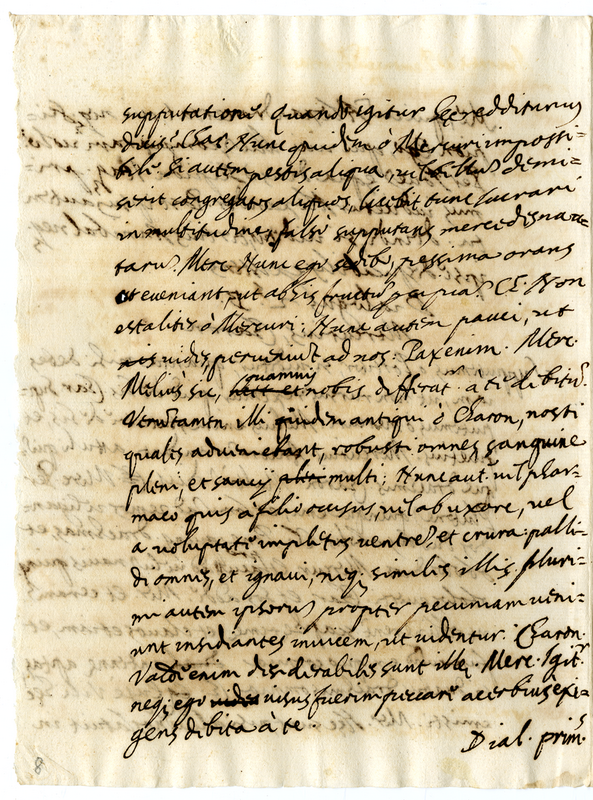 supputationē Quando igitur hęc redditurus
dicis? Char. Nunc quidem ò Mercuri impossi-
bile Si autem pestis aliqua, vel bellum demi-
serit congregatos aliquos, licebit tunc lucrari
in multitudine, falsò supputans mercedis nau-
tarum. Merc. Nunc ego sedebo, pessima orans
evenians, ut ab his fructum capiam? CE. Non
est aliter ò Mercuri: Nunc autem pauci, ut
vides, perveniunt ad nos: Pax enim. Merc.
Melius sic, quamvis nobis differatur à te debitū.
Veruntamen illi quidem antiqui ò Charon, nosti
quales adveniebant, robusti omnes sanguine
pleni, et saucij multi; Nunc aut. vel phar-
maco quis à filio occisus, vel ab uxore, vel
a voluptate impletus ventrem, et crura: palli-
di omnes, et ignavi, neq; similes illis. pluri-
mi autem ipsorum propter pecuniam veni-
unt insidiantes invicem, ut videntur. Charon.
Valde enim desiderabiles sunt illę. Merc. Igit.
neq; ego visus fuerim peccare acerbius exi-
gens debita à te.
Dial. prim.
8